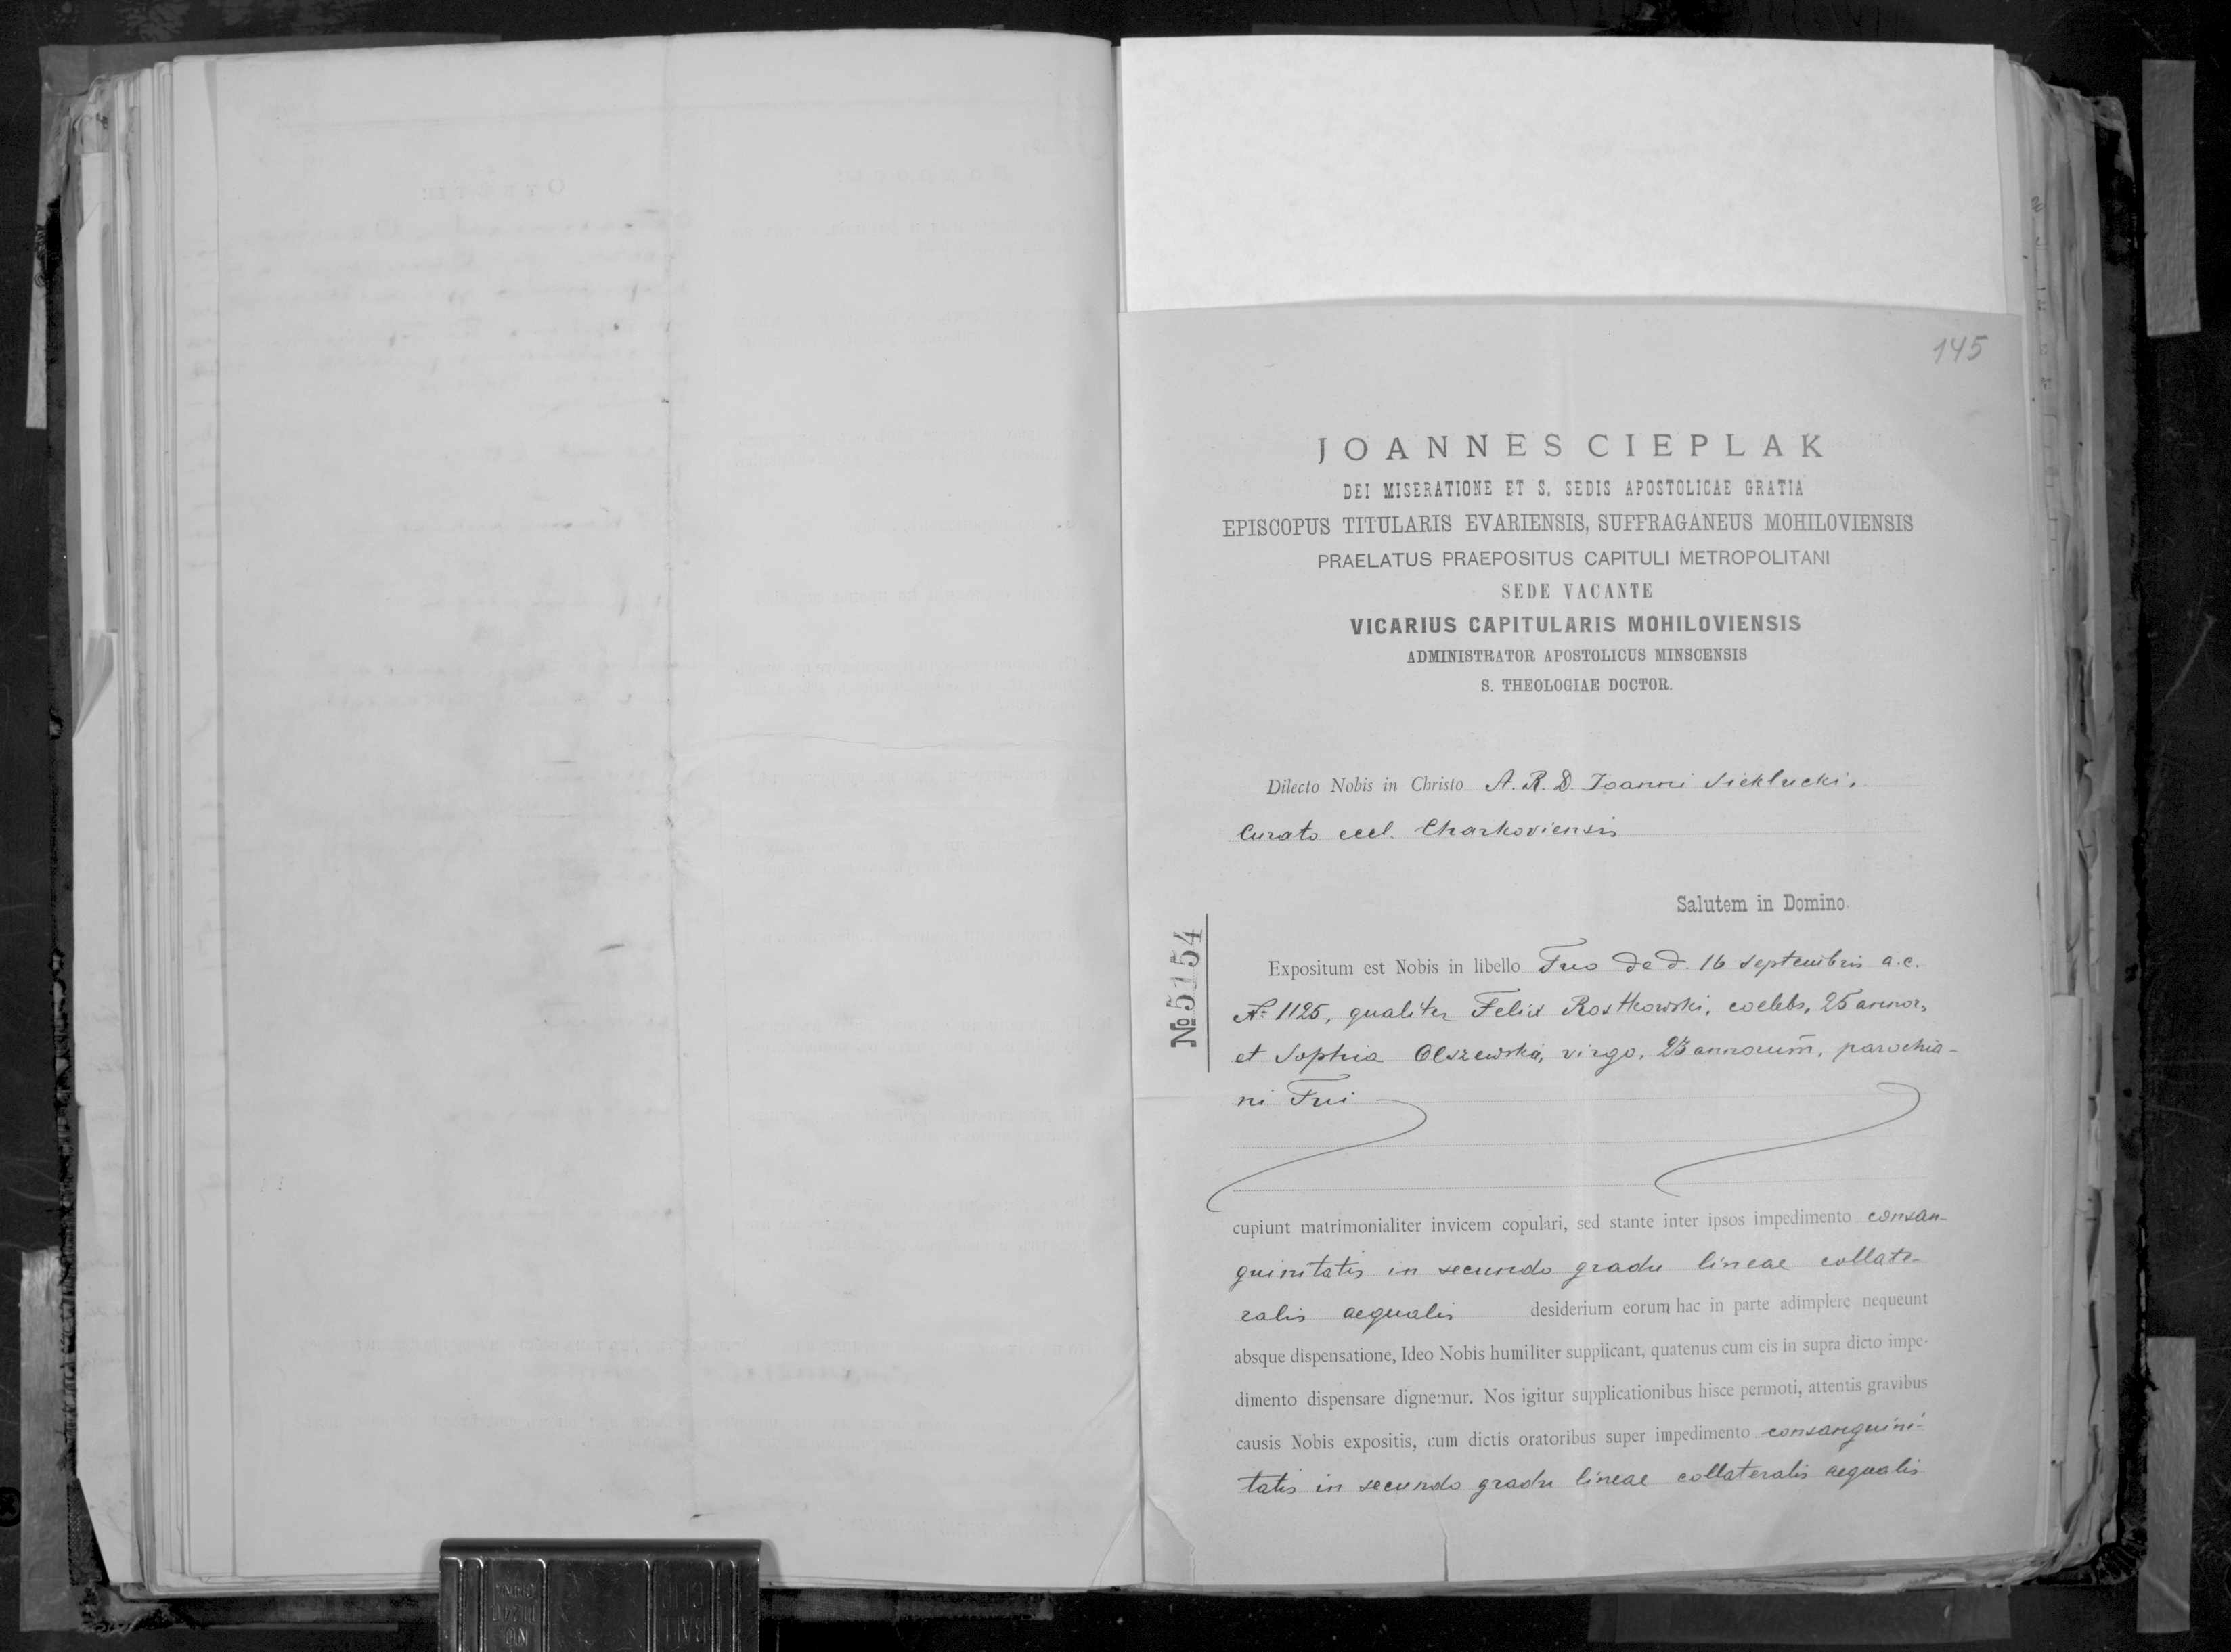 145
JOANNES CIEPLAK
DEI MISERATIONE ET S. SEDIS APOSTOLICAE GRATIA
EPISCOPUS TITULARIS EVARIENSIS, SUFFRAGANEUS MOHILOVIENSIS
PRAELATUS PRAEPOSITUS CAPITULI METROPOLITANI
SEDE VACANTE
VICARIUS CAPITULARIS MOHILOVIENSIS
ADMINISTRATOR APOSTOLICUS MINSCENSIS
S. THEOLOGIAE DOCTOR.
Dilecto Nobis in Christo A. R. D. Joanni Siektucki,
Curato eccl. Charkoviensis
Salutem in Domino.
№ 5154
Expositum est Nobis in libello Tuo de d. 16 Septembris a. c.
№ 1125, qualiter Felix Rostkowski, coelebs, 25 annor,
et Sophia Olszewska, virgo, 23 annorum, parochia-
ni Tui
cupiunt matrimonialiter invicem copulari, sed stante inter ipsos impedimento consan-
guinitatis in secundo gradu lineae collate-
ralis aequalis desiderium eorum hac in parte adimplere nequeunt
absque dispensatione, Ideo Nobis humiliter supplicant, quatenus cum eis in supra dicto impe-
dimento dispensare dignemur. Nos igitur supplicationibus hisce permoti, attentis gravibus
causis Nobis expositis, cum dictis oratoribus super impedimento consanguini-
tatis in secundo gradu lineae collateralis aequalis